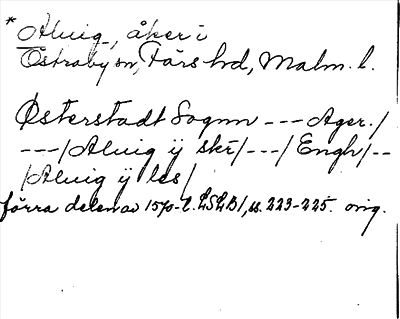 *Aluig-, åker i
Östraby sn, Färs hd, Malm. l.
Østerstadt Sognn --- Ager./
---/Aluig ij skr/---/Engh/--
/Aluig ij les/
förra delen av 1570-t. LSLB1, s. 223-225. orig.